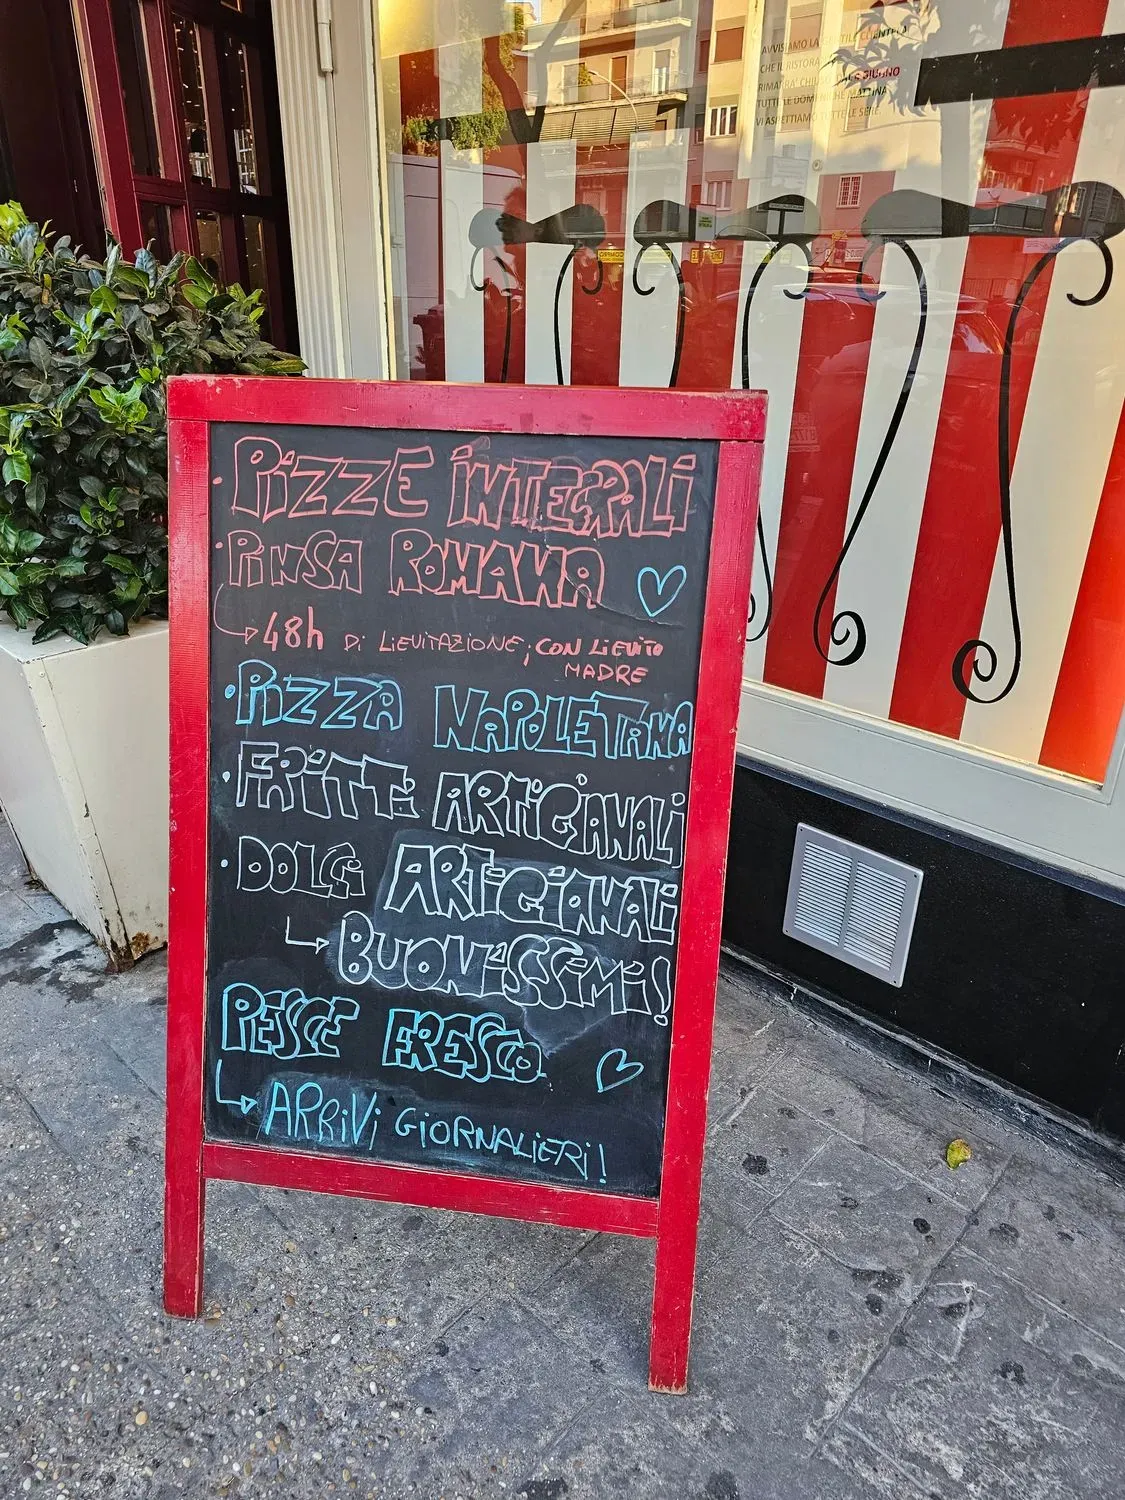 AVVISIAMO LA GENTILE CLIENTELA
CHE IL RISTORA
RIMARRA' CHIU GIUGNO
TUTTE LE DOMENICHE MATTINA
VI ASPETTIAMO TUTTE LE SERE.
• PIZZE INTEGRALI
• PINSA ROMANA
48h DI LIEVITAZIONE; CON LIEVITO
MADRE
• PIZZA NAPOLETANA
• FRITTI ARTIGIANALI
• DOLCI ARTIGIANALI
BUONISSIMI!
PESCE FRESCO
ARRIVI GIORNALIERI!